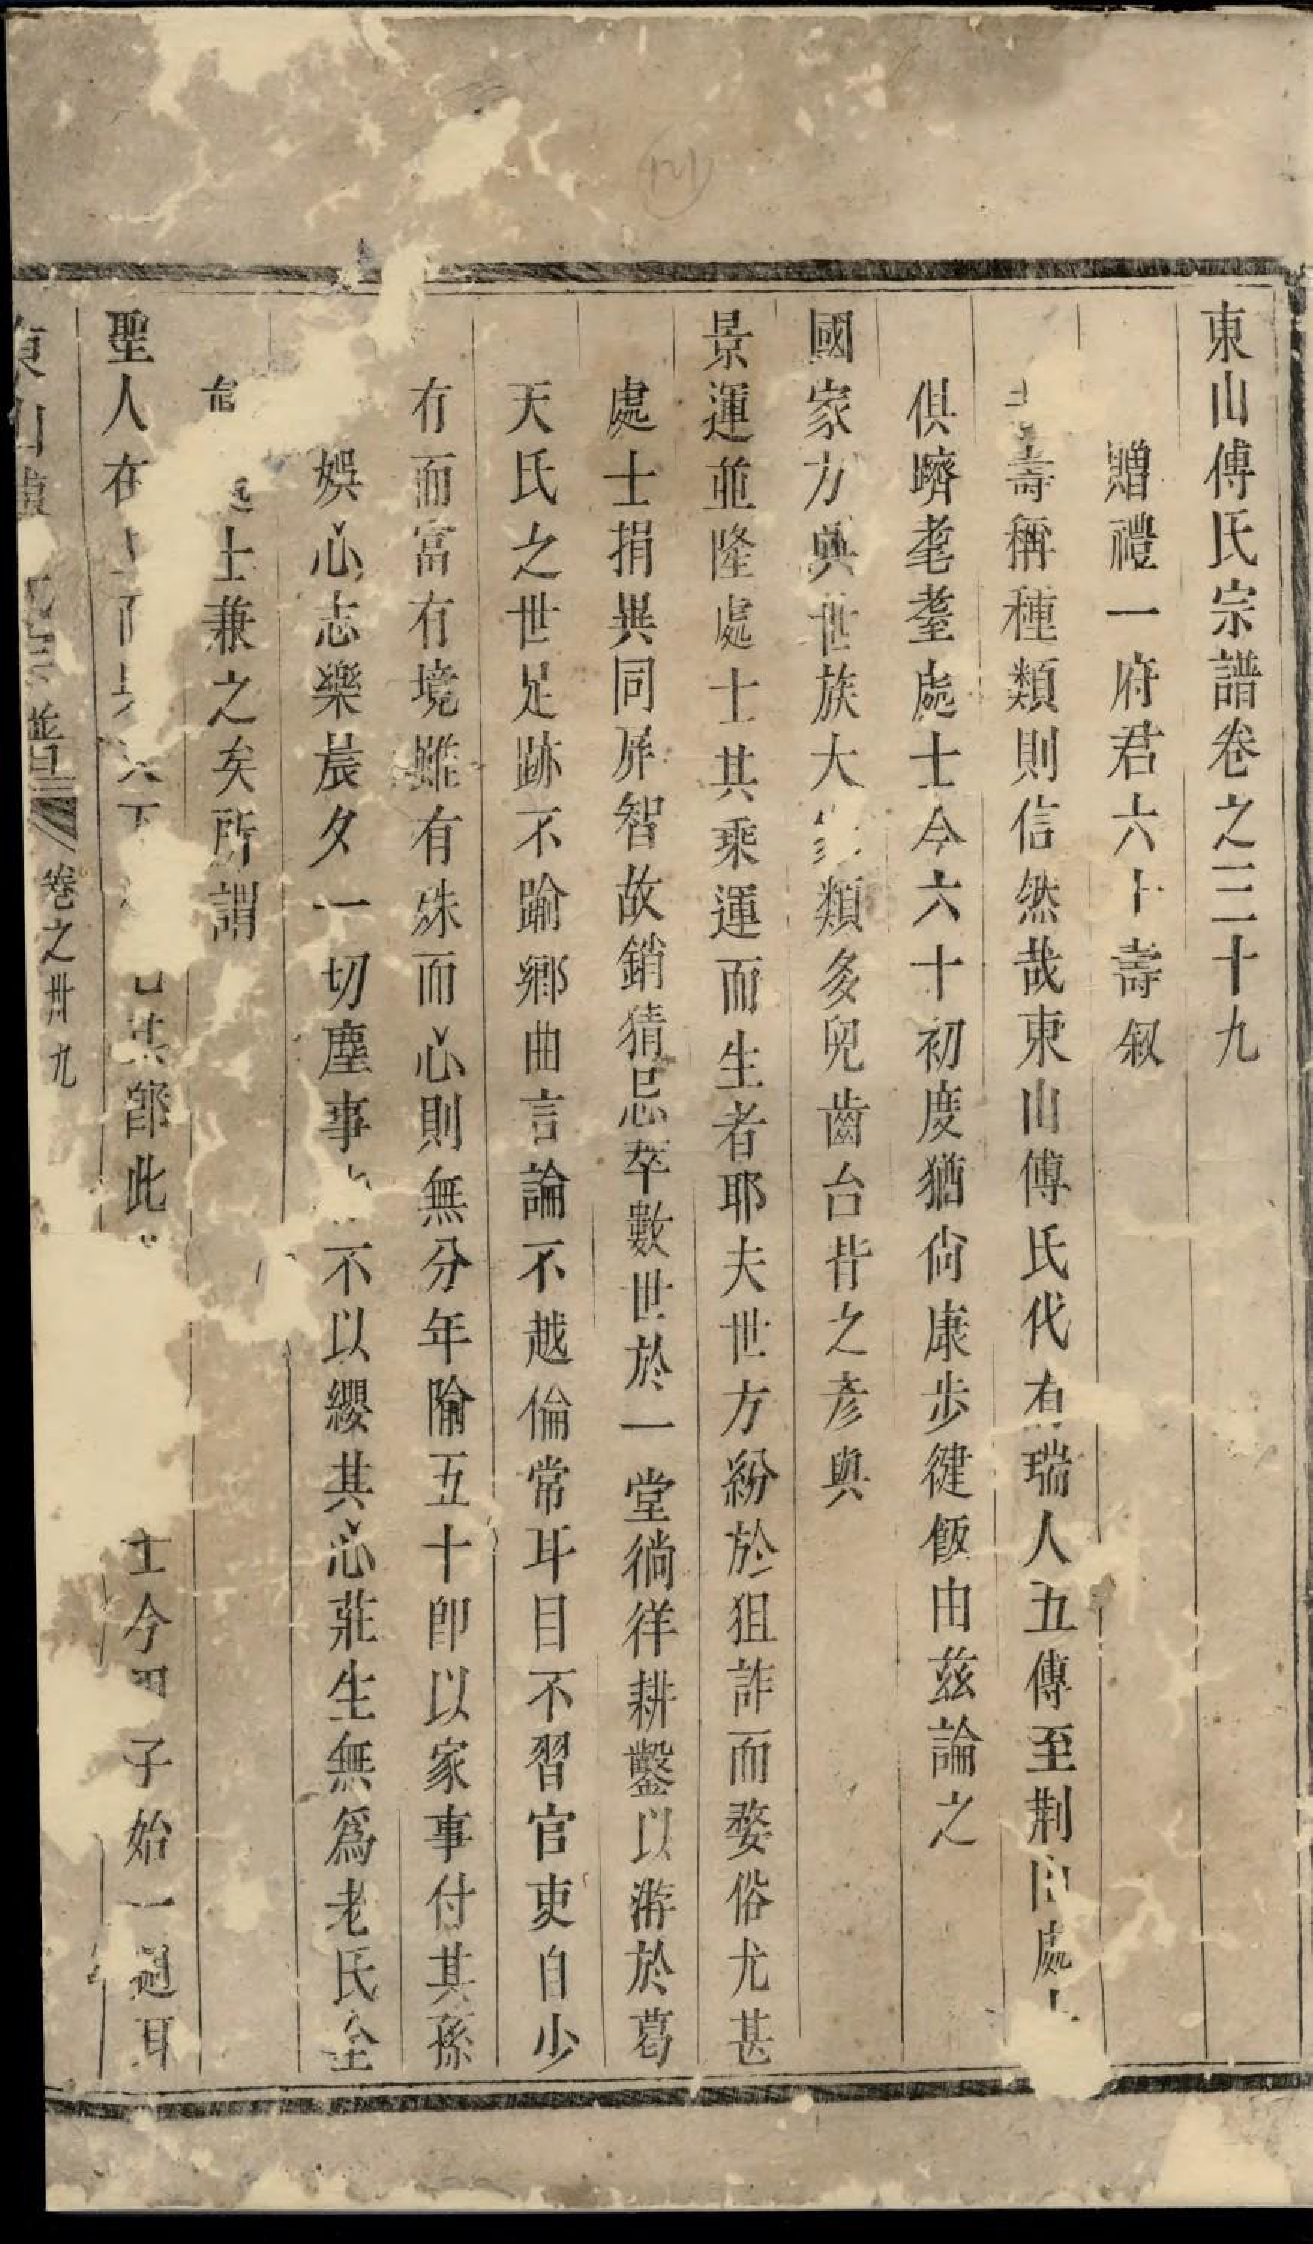 東山傅氏宗譜卷之三十九
贈禮一府君六十壽叙
壽稱種類則信然哉東山傅氏代有瑞人五傳至荆山處士
俱躋耄耋處士今六十初度猶尙康步健飯由兹論之
國家方興世族大家類多兒齒台背之彥與
景運並隆處士其乘運而生者耶夫世方紛於狙詐而婺俗尤甚
處士捐異同屏智故銷猜忌萃數世於一堂徜徉耕鑿以游於葛
天氏之世足跡不踰鄉曲言論不越倫常耳目不習官吏自少
有而富有境雖有殊而心則無分年隃五十卽以家事付其孫
娛心志樂晨夕一切塵事不以纓其心莊生無爲老氏全
士兼之矣所謂
聖人在此士今子始一過耳
東山傅氏宗譜 卷之卅九